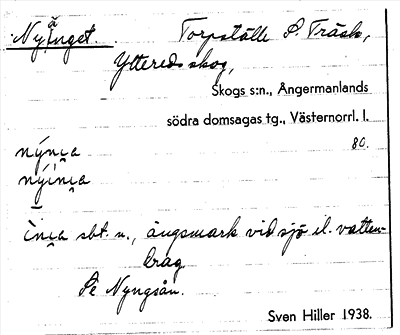 Nyånget. Torpställe S. Träsk,
Yttereds skog,
Skogs s:n., Ångermanlands
södra domsagas tg., Västernorrl. l.
80.
nýni̯a
nýìni̯a
ìni̯a sbt. n., ängsmark vid sjö el. vatten-
drag.
Se Nyngsån.
Sven Hiller 1938.